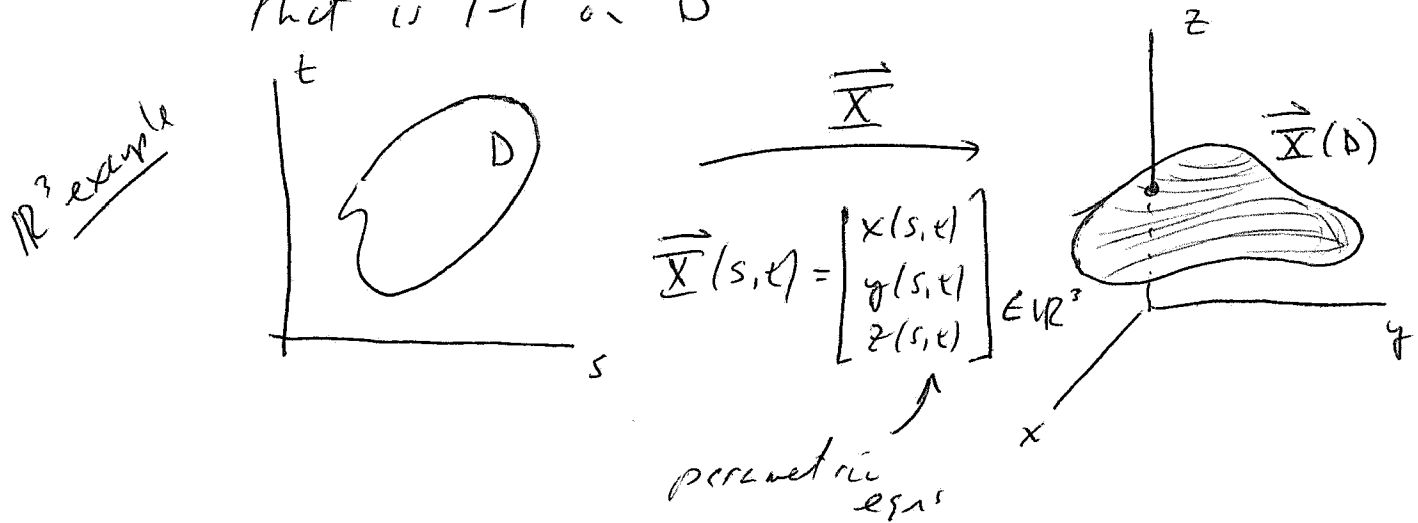 that is 1-1 on D
ℝ³ example
t
D
s
X⃗
X⃗(s,t) = [x(s,t) y(s,t) z(s,t)] ∈ ℝ³
parametric
eqns
z
X⃗(D)
y
x